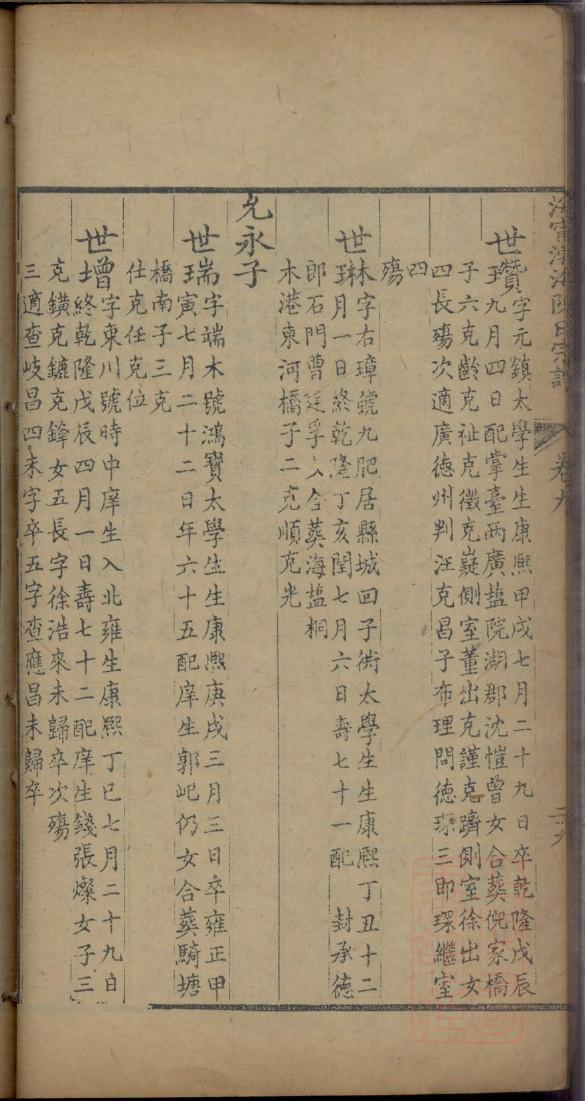 海寧渤海陳氏宗譜
卷九
世瓚字元鎮太學生生康熙甲戌七月二十九日卒乾隆戊辰
九月四日配掌臺兩廣盐院湖郡沈愷曾女合葬倪家橋
子六克齡克祉克徵克嶷側室董出克謹克躋側室徐出女
四長殤次適廣德州判汪克昌子布理問德琛三即琛繼室
四
殤
世琳字右璋號九肥居縣城回子衖太學生生康熙丁丑十二
月一日終乾隆丁亥閏七月六日壽七十一配 封承德
郎石門曹廷孚女合葬海盐桐
木港東河橋子二克順克光
允永子
世瑞字端木號鴻寶太學生生康熙庚戌三月三日卒雍正甲
寅七月二十二日年六十五配庠生郭屺仍女合葬騎塘
橋南子三克
仕克任克位
世增字東川號時中庠生入北雍生康熙丁巳七月二十九日
終乾隆戊辰四月一日壽七十二配庠生錢張燦女子三
克鐄克鏕克鋒女五長字徐浩來未歸卒次殤
三適查岐昌四未字卒五字查應昌未歸卒